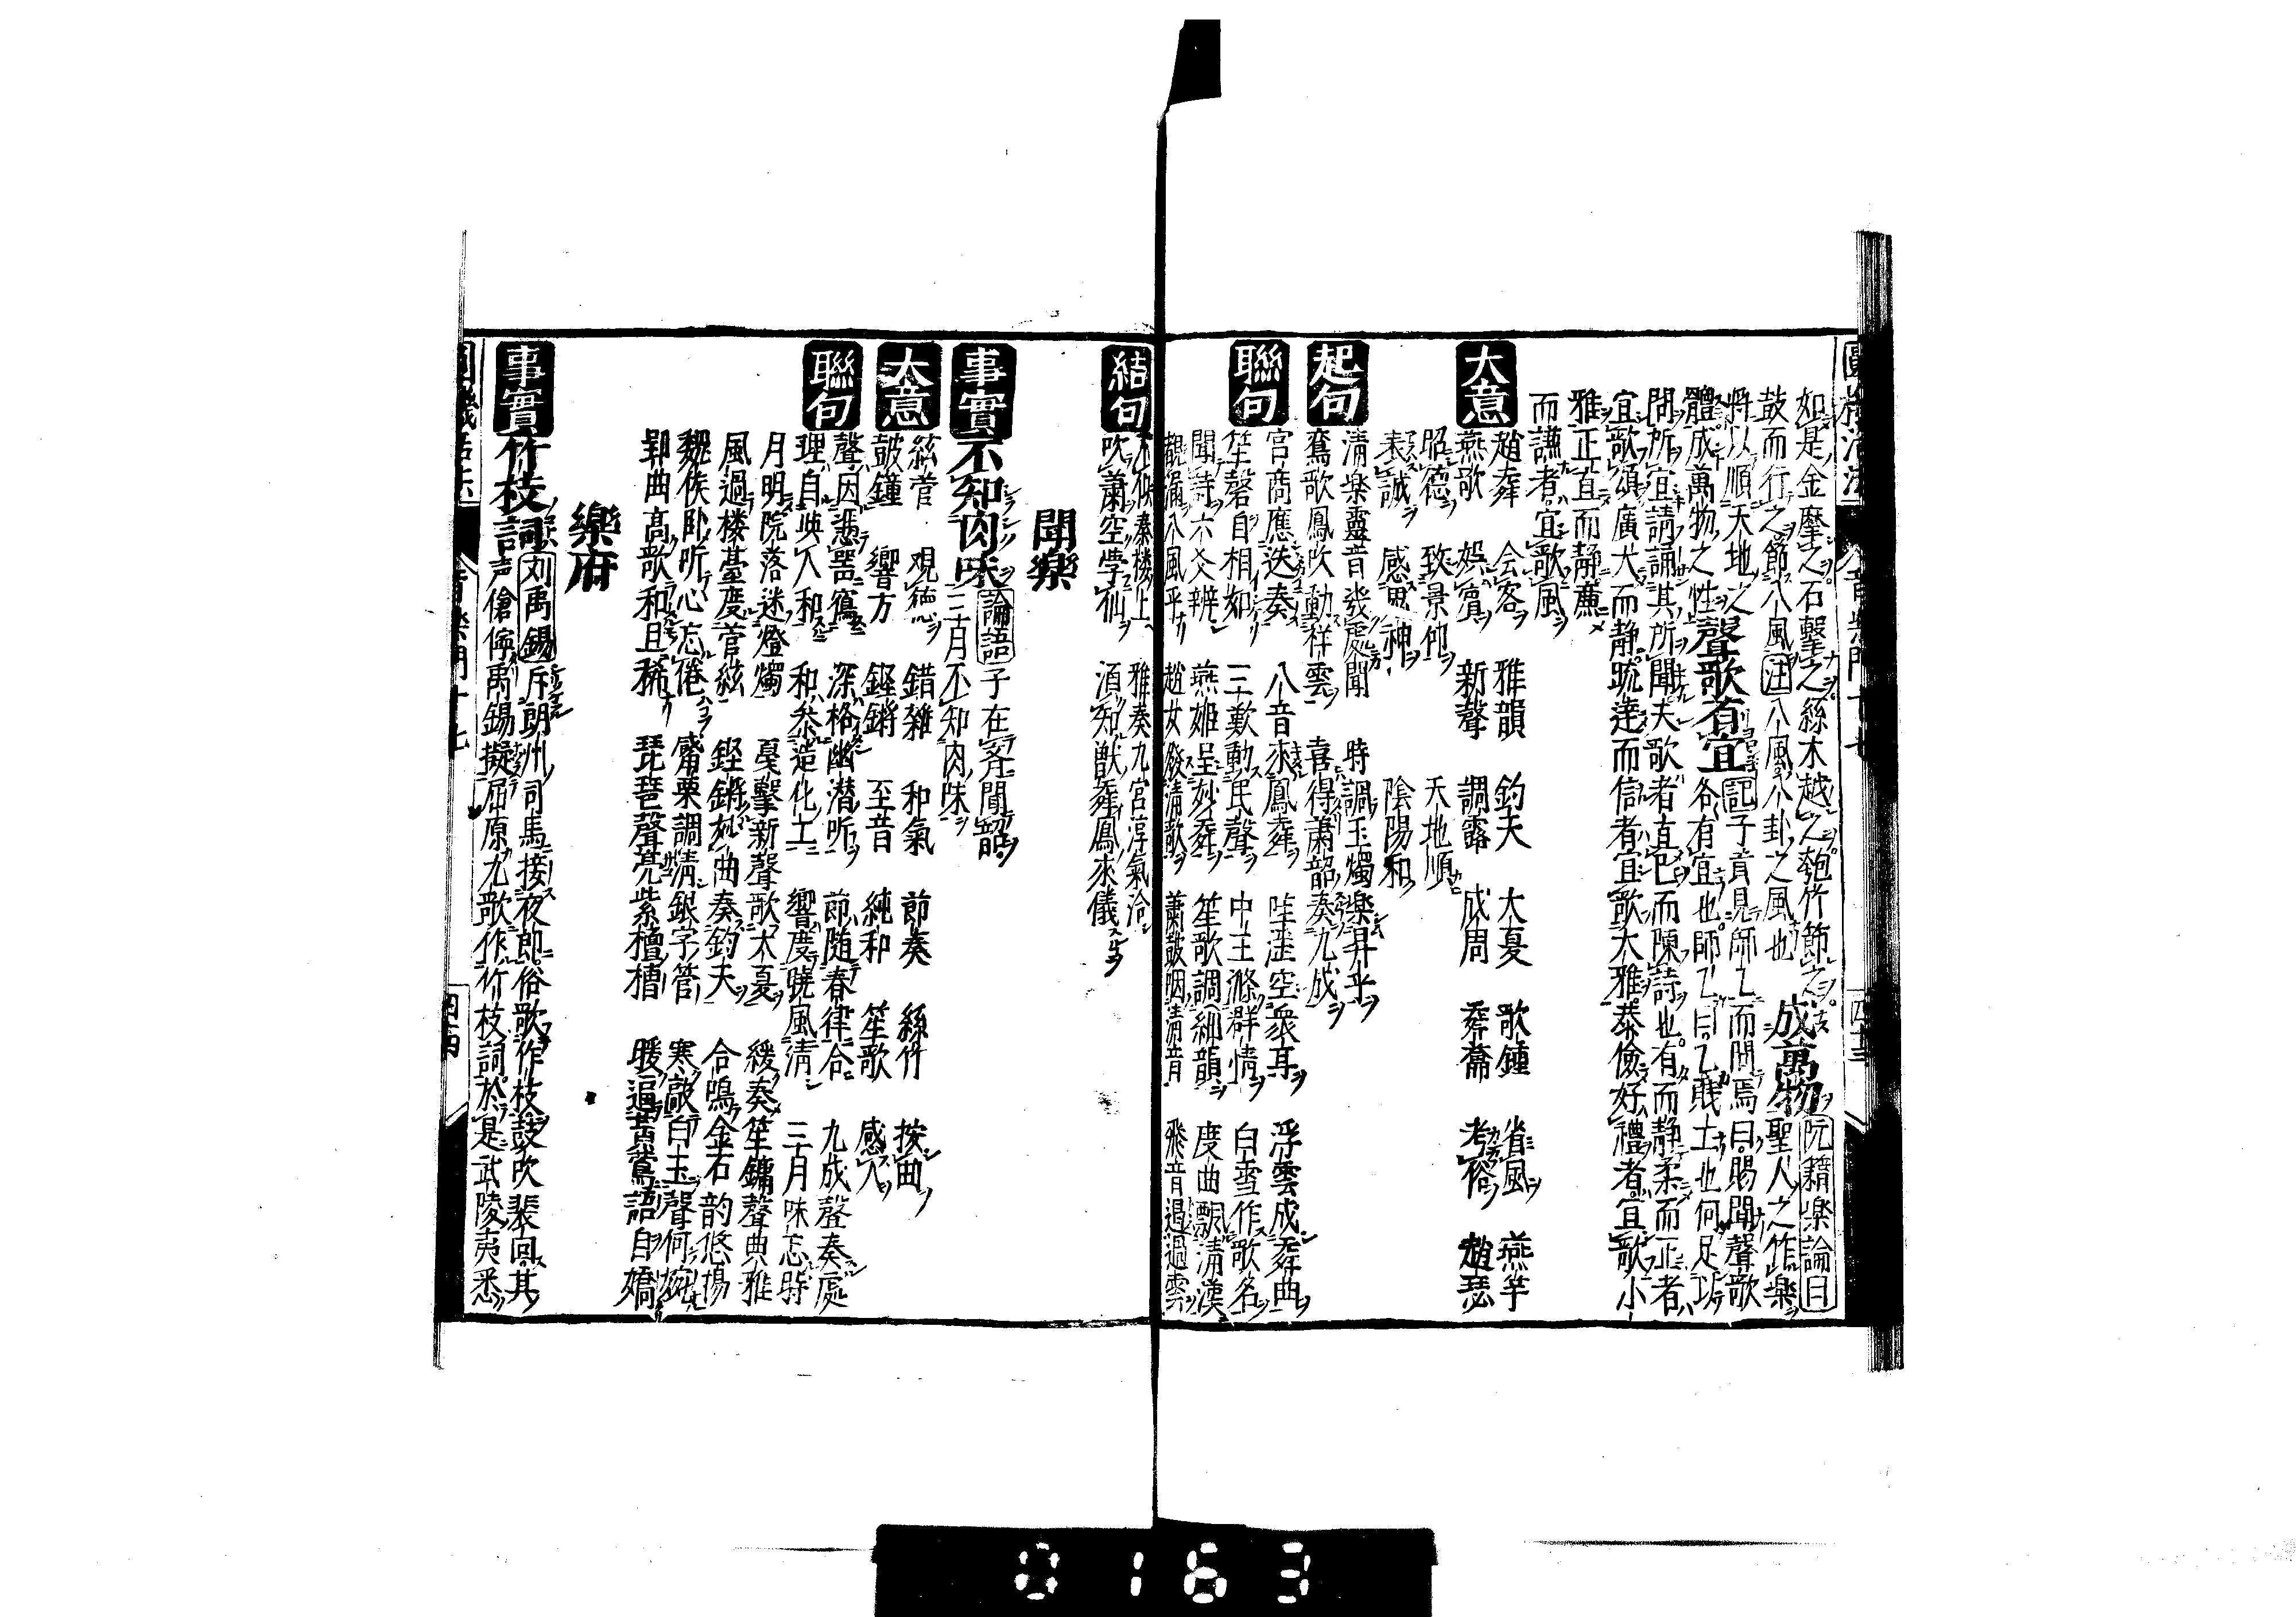 如是金摩之石擊之絲木越之匏竹節之
鼓而行之節八風注八風八卦之風也 成萬物阮籍樂論曰聖人之作樂
將以順天地之體成萬物之性
聲歌有宜記子貢見師乙而問焉曰賜聞聲歌
各有宜也師乙曰乙賤工也何足以
問所宜請誦其所聞夫歌者直己而陳詩也有而靜柔而正者
宜歌頌廣大而靜疏達而信者宜歌大雅恭儉好禮者宜歌小
雅正直而靜廉
而謙者宜歌風
大意
趙舞 会客 雅韻 鈞天 大夏 歌鍾 省風 燕竽
燕歌 娯賓 新聲 調露 成周 舞籥 考俗 趙瑟
昭德 致景仰 天地順
表誠 感思神 陰陽和
起句
清樂靈音發處聞 時調玉燭樂昇平
鸞歌鳳吹動祥雲 喜得蕭韶奏九成
聯句
宮商應迭奏 八音來鳳舞 空衆耳 浮雲成舞曲
笙磬自相如 三歎動民聲 中王滌群情 白雪作歌名
聞詩六爻辨 燕姬呈妙舞 笙歌調細韻 度曲飄清漢
八風平 趙女發清歌 蕭鼓咽清音 飛音遏過雲
結句
秦楼上 雅奏九宮淳氣洽
吹蕭空學仙 須知獸舞鳳來儀
聞樂
事實
不知肉味論語子在斉聞韶
三月不知肉味
大意
絃菅 観徳 錯雜 和氣 節奏 絲竹 按曲
鼓鐘 響方 鏗鏘 至音 純和 笙歌 感人
聯句
聲因憑器寫 深格幽潜听 節随春律合 九成聲奏處
理自與人和 和參造化工 響度曉風清 三月味忘時
月明院落迷燈燭 戛擊新聲歌大夏 緩奏笙鏞聲典雅
風過楼臺度菅絃 鏗鏘妙曲奏鈞天 合鳴金石韵悠揚
魏侯卧听心忘倦 觱栗調情銀字管 寒敲白玉聲何婉
郢曲高歌和且稀 琵琶聲亮紫檀槽 暖逼黃鶯語自嬌
樂府
事實
竹枝詞刘禹錫斥朗州司馬接夜郎俗歌作枝鼓吹裴回其
声傖儜禹錫擬屈原九歌作竹枝詞於是武陵夷悉
0163